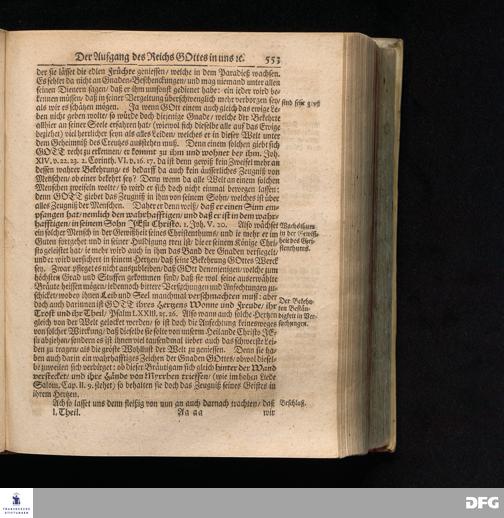 Der Auffgang des Reichs GOttes in uns ꝛc. 553
der sie lässet die edlen Früchte geniessen/ welche in dem Paradieß wachsen.
Es fehlet da nicht an Gnaden-Beschenckungen/ und mag niemand unter allen
seinen Dienern sagen/ daß er ihm umsonst gedienet habe: ein jeder wird be-
kennen müssen/ daß in seiner Vergeltung überschwenglich mehr verborgen sey/
als wir es schätzen mögen. Ja wenn GOtt einem auch gleich das ewige Le-
sind sehr groß
ben nicht geben wolte/ so würde doch diejenige Gnade/ welche der Bekehrte
allhier an seiner Seele erfahren hat/ (wiewol sich dieselbe alle auf das Ewige
beziehet) viel herrlicher seyn als alles Leiden/ welches er in dieser Welt unter
dem Geheimniß des Creutzes ausstehen muß. Denn einem solchen giebt sich
GOTT recht zu erkennen/ er kommt zu ihm und wohnet bey ihm. Joh.
XIV, v. 22. 23. 2. Corinth. VI. v. 16. 17. da ist denn gewiß kein Zweifel mehr an
dessen wahrer Bekehrung/ es bedarff da auch kein äusserliches Zeugniß von
Menschen/ ob einer bekehrt sey? Denn wenn da alle Welt an einem solchen
Menschen zweifeln wolte/ so wird er sich doch nicht einmal bewegen lassen:
denn GOTT giebet das Zeugniß in ihm von seinem Sohn/ welches ist über
alles Zeugniß der Menschen. Daher er denn weiß/ daß er einen Sinn em-
pfangen hat/ nemlich den wahrhafftigen/ und daß er ist in dem wahr-
hafftigen/ in seinem Sohn JEsu Christo. 1. Joh. V. 20. Also wächset
Wachsthum
in der Gewiß-
heit des Chri-
stenthums.
ein solcher Mensch in der Gewißheit seines Christenthums/ und je mehr er im
Guten fortgehet und in seiner Huldigung treu ist/ die er seinem Könige Chri-
sto geleistet hat/ je mehr wird auch in ihm das Band der Gnaden versiegelt/
und er wird versichert in seinem Hertzen/ daß seine Bekehrung GOttes Werck
sey. Zwar pfleget es nicht auszubleiben/ daß GOtt denenjenigen/ welche zum
höchsten Grad und Stuffen gekommen sind/ daß sie wol seine auserwählte
Bräute heissen mögen/ jedennoch bittere Versuchungen und Anfechtungen zu-
schicket/ wobey ihnen Leib und Seel manchmal verschmachten muß: aber
Der Bekehr-
ten Bestän-
digkeit in Ver-
suchungen.
doch auch darinnen ist GOTT ihres Hertzens Wonne und Freude/ ihr
Trost und ihr Theil/ Psalm LXXIII. v. 26. Also wann auch solche Hertzen
gleich von der Welt gelocket werden/ so ist doch die Anfechtung keinesweges
von solcher Würckung/ daß dieselbe sie solte von unserm Heilande Christo JE-
su abziehen/ sondern es ist ihnen viel tausendmal lieber auch das schwerste Lei-
den zu tragen/ als die gröste Wohllust der Welt zu geniessen. Denn sie ha-
ben auch darin ein wahrhafftiges Zeichen der Gnaden GOttes/ obwol diesel-
be zuweilen sich verbirget: ob dieser Bräutigam sich gleich hinter der Wand
verstecket/ und ihre Hände von Myrrhen trieffen/ (wie im hohen Liede
Salom. Cap. II. 9. stehet) so behalten sie doch das Zeugniß seines Geistes in
ihrem Hertzen.
Ach so lasset uns denn fleißig von nun an auch darnach trachten/ daß
Beschluß.
I. Theil. Aa aa wir
FRANCKESCHE
STIFTUNGEN
DFG